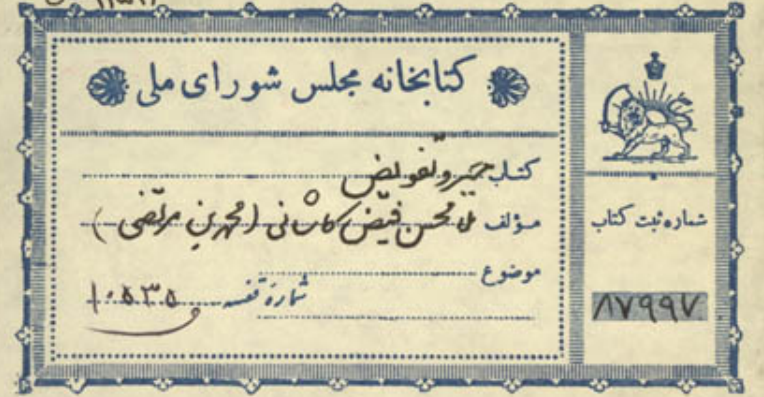 کتابخانه مجلس شورای ملی
کتاب جبر و تفویض
مؤلف ملا محسن فیض کاشانی (محمد بن مرتضی)
موضوع
شماره قفسه ۱۰۵۳۵
شماره ثبت کتاب
۸۷۹۹۷